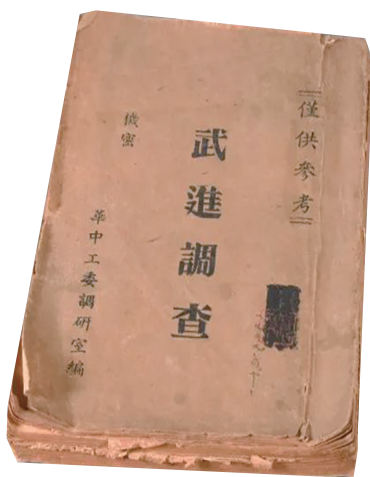 僅供參考
武進調查
機密
華中工委調研室編